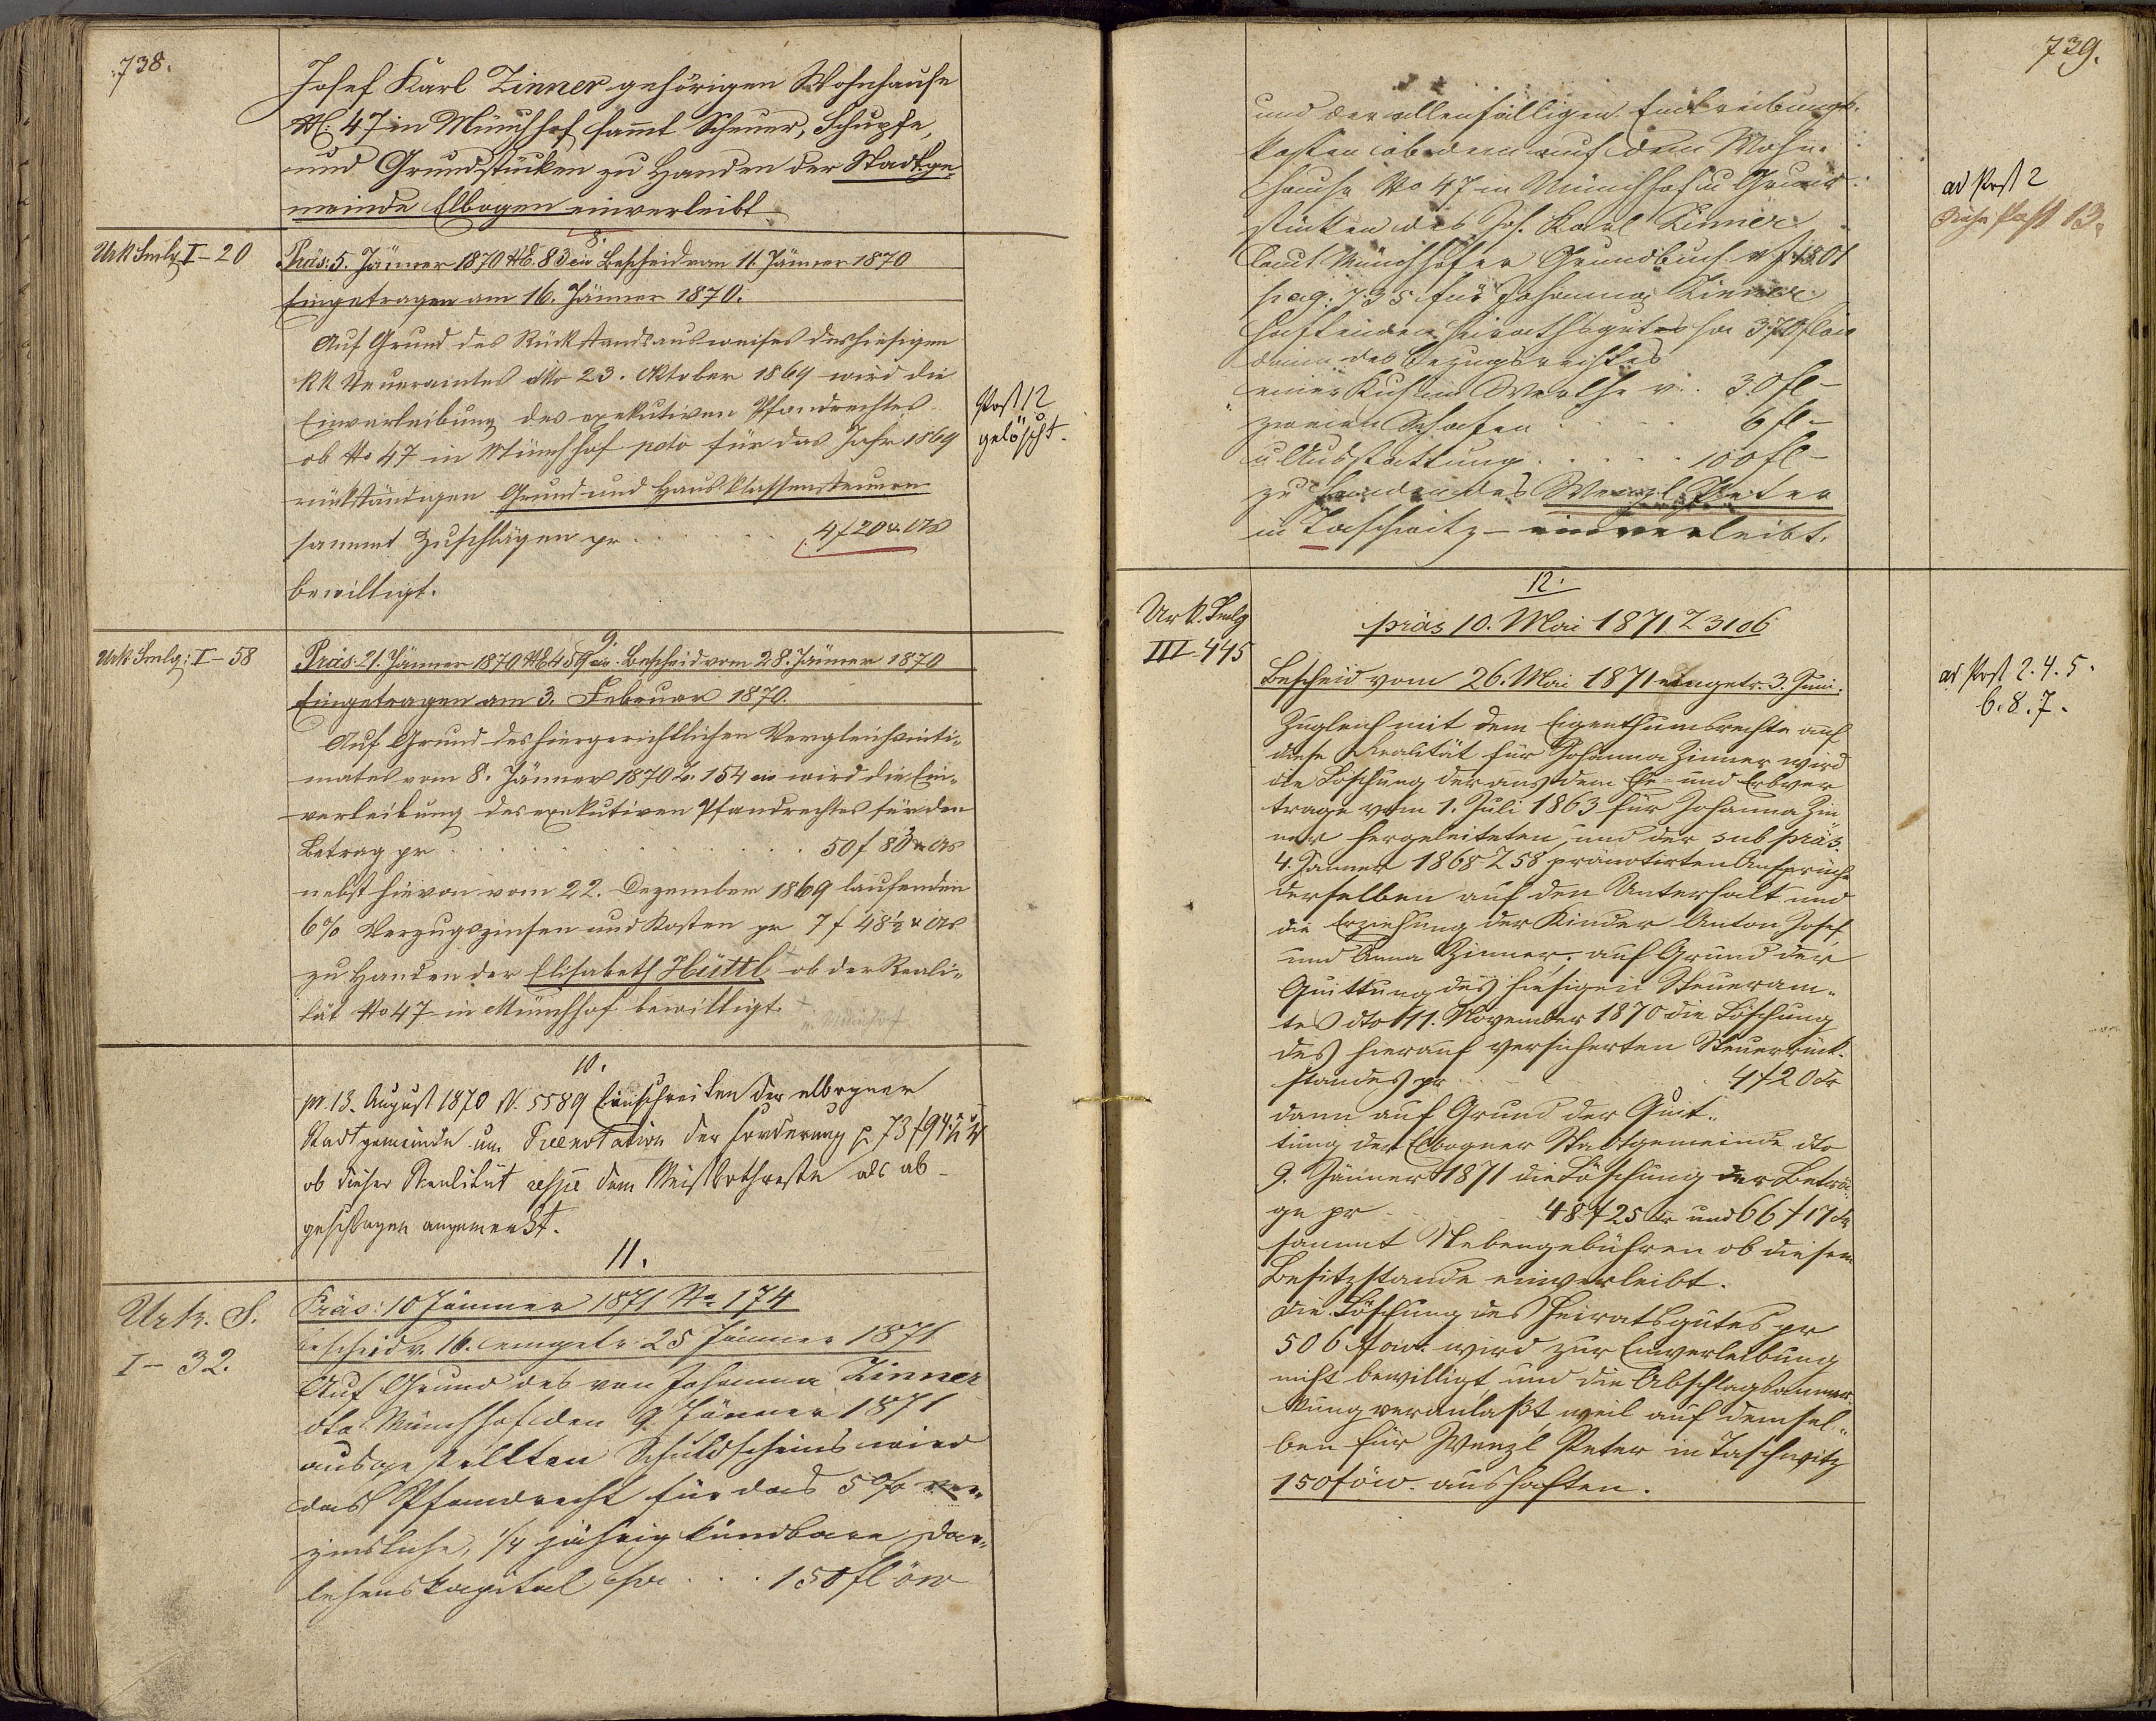 738.
Josef Karl Zinner gehörigen Wohnhause
N: 47 in Münchhof sammt Scheuer, Schupfe,
und Grundstücken zu Handen der Stadtge-
meinde Elbogen einverleibt
8.
Urk Smlg I-20
Präs: 5. Jänner 1870 N. 83 civ Bescheid vom 11. Jänner 1870
Eingetragen am 16. Jänner 1870.
Auf Grund des Rückstandsausweises des hiesigen
kk Steueramtes dto 23. Oktober 1869 wird die
Einverleibung des exekutiven Pfandrechtes
ob No 47 in Münchhof pcto für das Jahr 1869
rückständigen Grund- und Hausklassensteuern
sammt Zuschlägen pr . . . . 4f 20 x. W
bewilligt.
Post 12
gelöscht.
9.
Urk Smlg: I-58
Präs. 21. Jänner 1870 N 459 civ. Bescheid vom 28. Jänner 1870
Eingetragen am 3. Februar 1870.
Auf Grund des hiergerichtlichen Vergleichsinti-
mates vom 8. Jänner 1870 Z. 154 civ wird die Ein-
verleibung des exekutiven Pfandrechtes für den
Betrag pr . . . . 50f 83
nebst hievon vom 22. Dezember 1869 laufenden
6% Verzugszinsen und Kosten pr 7 f 48½ x
zu Handen der Elisabeth Hüttl ob der Reali-
tät No 47 in Münchhof bewilligt.
10.
pr. 13. August 1870 N. 5589 Einschreiten der elbogner
Stadtgemeinde um Praenotation der Forderung p. 73 f 94½
ob dieser Realität respe dem Meistbothreste als ab-
geschlagen angemerkt.
11.
Urk. S.
I-32.
Präs: 10 Jänner 1871 No 174
Bescheid v. 16. eingetr. 25 Jänner 1871
Auf Grund des von Johanna Zinner
dto Münchhof den 9. Jänner 1871
ausgestellten Schuldscheins wird
das Pfandrecht für das 5% ver-
zinsliche, ¼ jährig kündbare Dar-
lehenskapital pr . . . 150 fl öw
739.
und der allenfälligen Eintreibungs-
kosten ob dem auf dem Wohn-
hause No 47 in Münchhof u Grund-
stücken des Jos. Karl Zinner
laut Münchhöfer Grundbuch v J. 1801
pag: 735 für Johanna Zinner
haftenden Heirathsgutes pr 370 fl öw
dann des Bezugsrechtes
einer Kuh im Werthe v. . 30 fl -
zweier Schafen . . . . 6 fl -
u Ausstattung . . . . 100 fl -
zu Handen des Wenzl Peter
in Taschwitz - einverleibt.
ad Post 2
Siehe Post 13.
12.
Urk. Smlg
III-445
präs 10. Mai 1871 Z 3106
Bescheid vom 26. Mai 1871 eingetr. 3. Juni.
ad Post 2. 4. 5.
6. 8. 7.
Zugleich mit dem Eigenthumsrechte auf
diese Realität für Johanna Zinner wird
die Löschung der aus dem Ehe- und Erbver
trage vom 1. Juli 1863 für Johanna Zin
ner hergeleiteten, und der sub präs.
4. Jänner 1868 Z 58 pränotirten Ansprüche
derselben auf den Unterhalt und
die Erziehung der Kinder Anton Josef
und Anna Zinner; auf Grund der
Quittung des hiesigen Steueram-
tes dto 11. November 1870 die Löschung
des hierauf versicherten Steuerrück-
standes pr . . . 4f 20 kr
dann auf Grund der Quit-
tung der Elbogner Stadtgemeinde dto
9. Jänner 1871 die Löschung der Beträ-
ge pr . . . 48 f 25 kr und 66 f 17 kr
sammt Nebengebühren ob diesem
Besitzstande einverleibt.
Die Löschung des Heiratsgutes pr
506 f öw. wird zur Einverleibung
nicht bewilligt und die Abschlagsanmer-
kung veranlaßt weil auf demsel-
ben für Wenzl Peter in Taschwitz
150 f öw. aushaften.